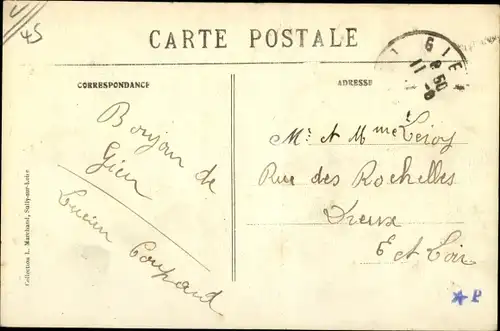 45
CARTE POSTALE
CORRESPONDANCE
ADRESSE
GIE
8 50
11 -8
Bonjour de
Gien
Lucien Coupard
Mr et Mme Leroy
Rue des Rochelles
Dreux
E et Loir
Collection L. Marchand, Sully-sur-Loire
P